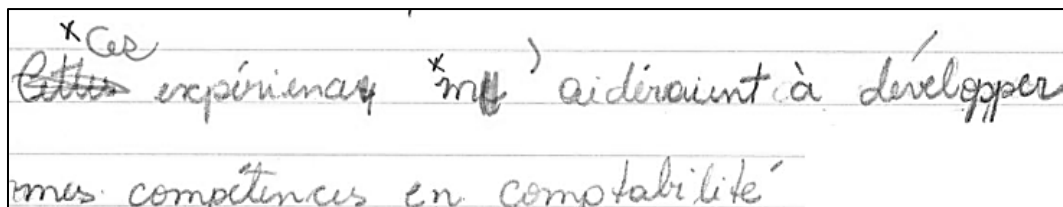 *Ces
expériences *m' aidéraient à développer
mes compétences en comptabilité